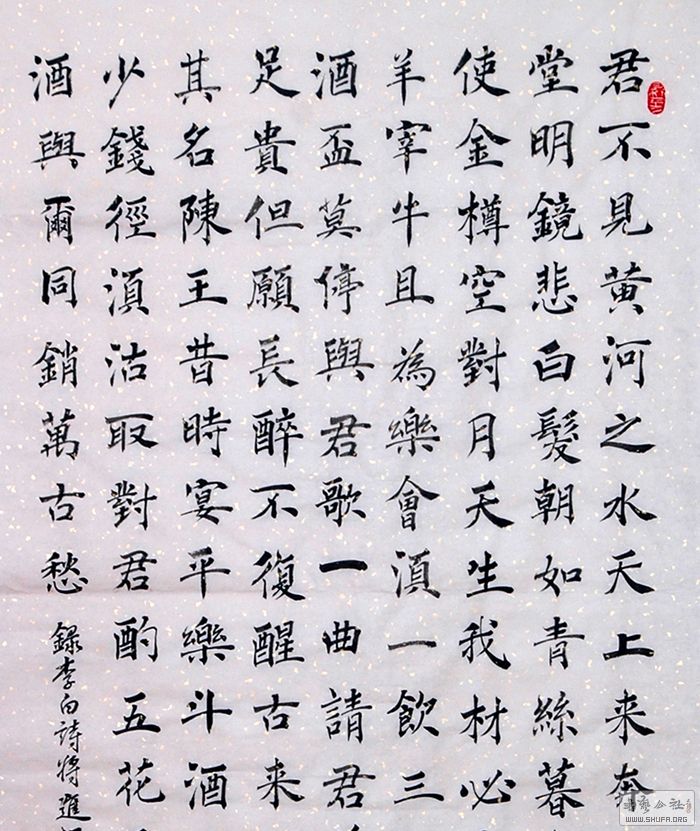 君不見黄河之水天上来奔
堂明鏡悲白髮朝如青絲暮
使金樽空對月天生我材必
羊宰牛且為樂會湏一飲三
酒盃莫停與君歌一曲請君
足貴但願長醉不復醒古来
其名陳王昔時宴平樂斗酒
少錢徑湏沽取對君酌五花
酒與爾同銷萬古愁
録李白詩將進
公社
WWW.SHUFA.ORG